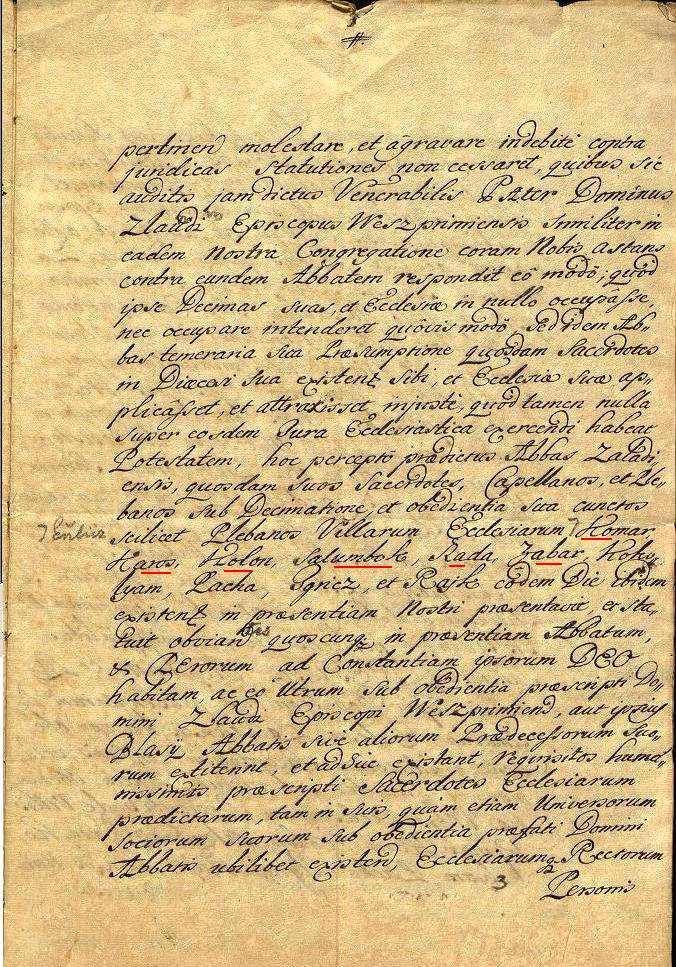 #.
pertinen̄ molestare, et ag̃ravare indebitè contra
juridicas statutiones non cessaret, quibus sic
auditis jam dictus Venerabilis Pater Dominus
Episcopus Weszprimiensis similiter in
eadem Nostra Congregatione coram Nobis astans
contra eundem Abbatem respondit eô modô; quòd
ipse Decimas suas, et Ecclesiæ in nullo occupâsset,
nec occupare intenderet quovis modô, sed idem Ab„
bas temeraria sua Præsumptione quosdam Sacerdotes
in Diæcesi sua existent sibi, et Ecclesiæ suæ ap„
plicâsset, et attraxisset injustè, quòd tamen nulla
super eosdem Jura Ecclesiastica exercendi habeat
Potestatem, hoc perceptô prædictus Abbas Zaladi
ensis, quosdam suos Sacerdotes, Capellanos, et Ple„
banos sub Decimatione, et obedientia sua cunctos
scilicet Plebanos Villarum Ecclesiarum Komar
Karos, Kolon, Szlumbok, Rada, Zabar,
lyam, Pacha, Igricz, et Rajk eôdem Die ibidem
existent in præsentiam Nostri præsentavit, et sta„
tuit obvian quoscunq̃ in præsentiam Abbatum,
& ad Constantiam ipsorum DEO
habitam, ac eô Utrum sub obedientia præscripti Do„
mini Episcopi Weszprimien̄, aut ipsius
Blasij Abbatis sivè aliorum Prædecessorum Suo„
rum extiterint, et adhuc existant, requisitos huma„
nissimis præscripti Sacerdotes Ecclesiarum
prædictarum, tam in suis, quàm etiam Universorum
Sociorum suorum sub obedientia præfati Domini
Abbatis ubilibet existen̄, Ecclesiarumq̃ Rectorum
3
Personis